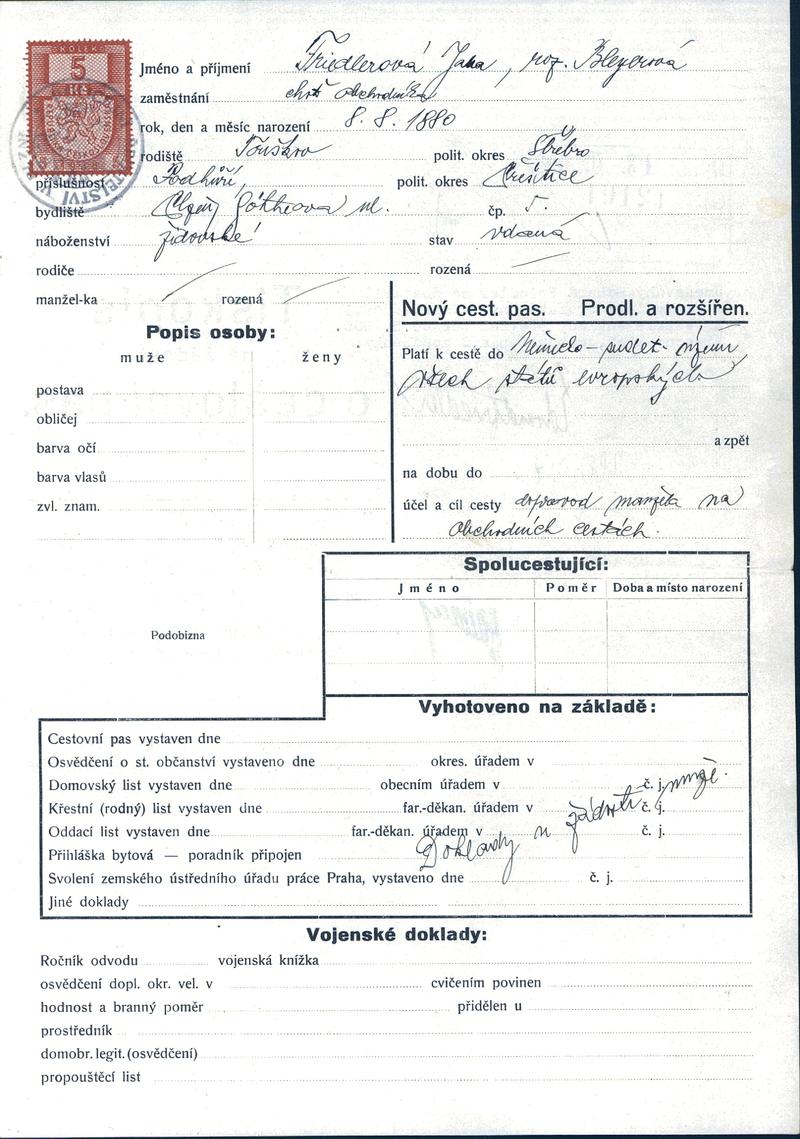 KOLEK
5
Kč
Jméno a příjmení Friedlerová Jana, roz. Bleyerová
zaměstnání choť obchodníka
rok, den a měsíc narození 8. 8. 1880
rodiště Touškov polit. okres Stříbro
příslušnost Podhůří, polit. okres Přeštice
bydliště Plzeň, Götheova ul. čp. 5.
náboženství židovské stav vdaná
rodiče rozená
manžel-ka rozená
Nový cest. pas. Prodl. a rozšířen.
Popis osoby:
muže ženy
Platí k cestě do Německo-sudet. území
všech států evropských
postava
obličej
a zpět
barva očí
barva vlasů
na dobu do
zvl. znam.
účel a cíl cesty doprovod manžela na
obchodních cestách.
Spolucestující:
Jméno Poměr Doba a místo narození
Podobizna
Vyhotoveno na základě:
Cestovní pas vystaven dne
Osvědčení o st. občanství vystaveno dne okres. úřadem v
Domovský list vystaven dne obecním úřadem v č. j.
Křestní (rodný) list vystaven dne far.-děkan. úřadem v č. j.
Oddací list vystaven dne far.-děkan. úřadem v č. j.
Doklady u žádosti muže.
Přihláška bytová — poradník připojen
Svolení zemského ústředního úřadu práce Praha, vystaveno dne č. j.
Jiné doklady
Vojenské doklady:
Ročník odvodu vojenská knížka
osvědčení dopl. okr. vel. v cvičením povinen
hodnost a branný poměr přidělen u
prostředník
domobr. legit. (osvědčení)
propouštěcí list